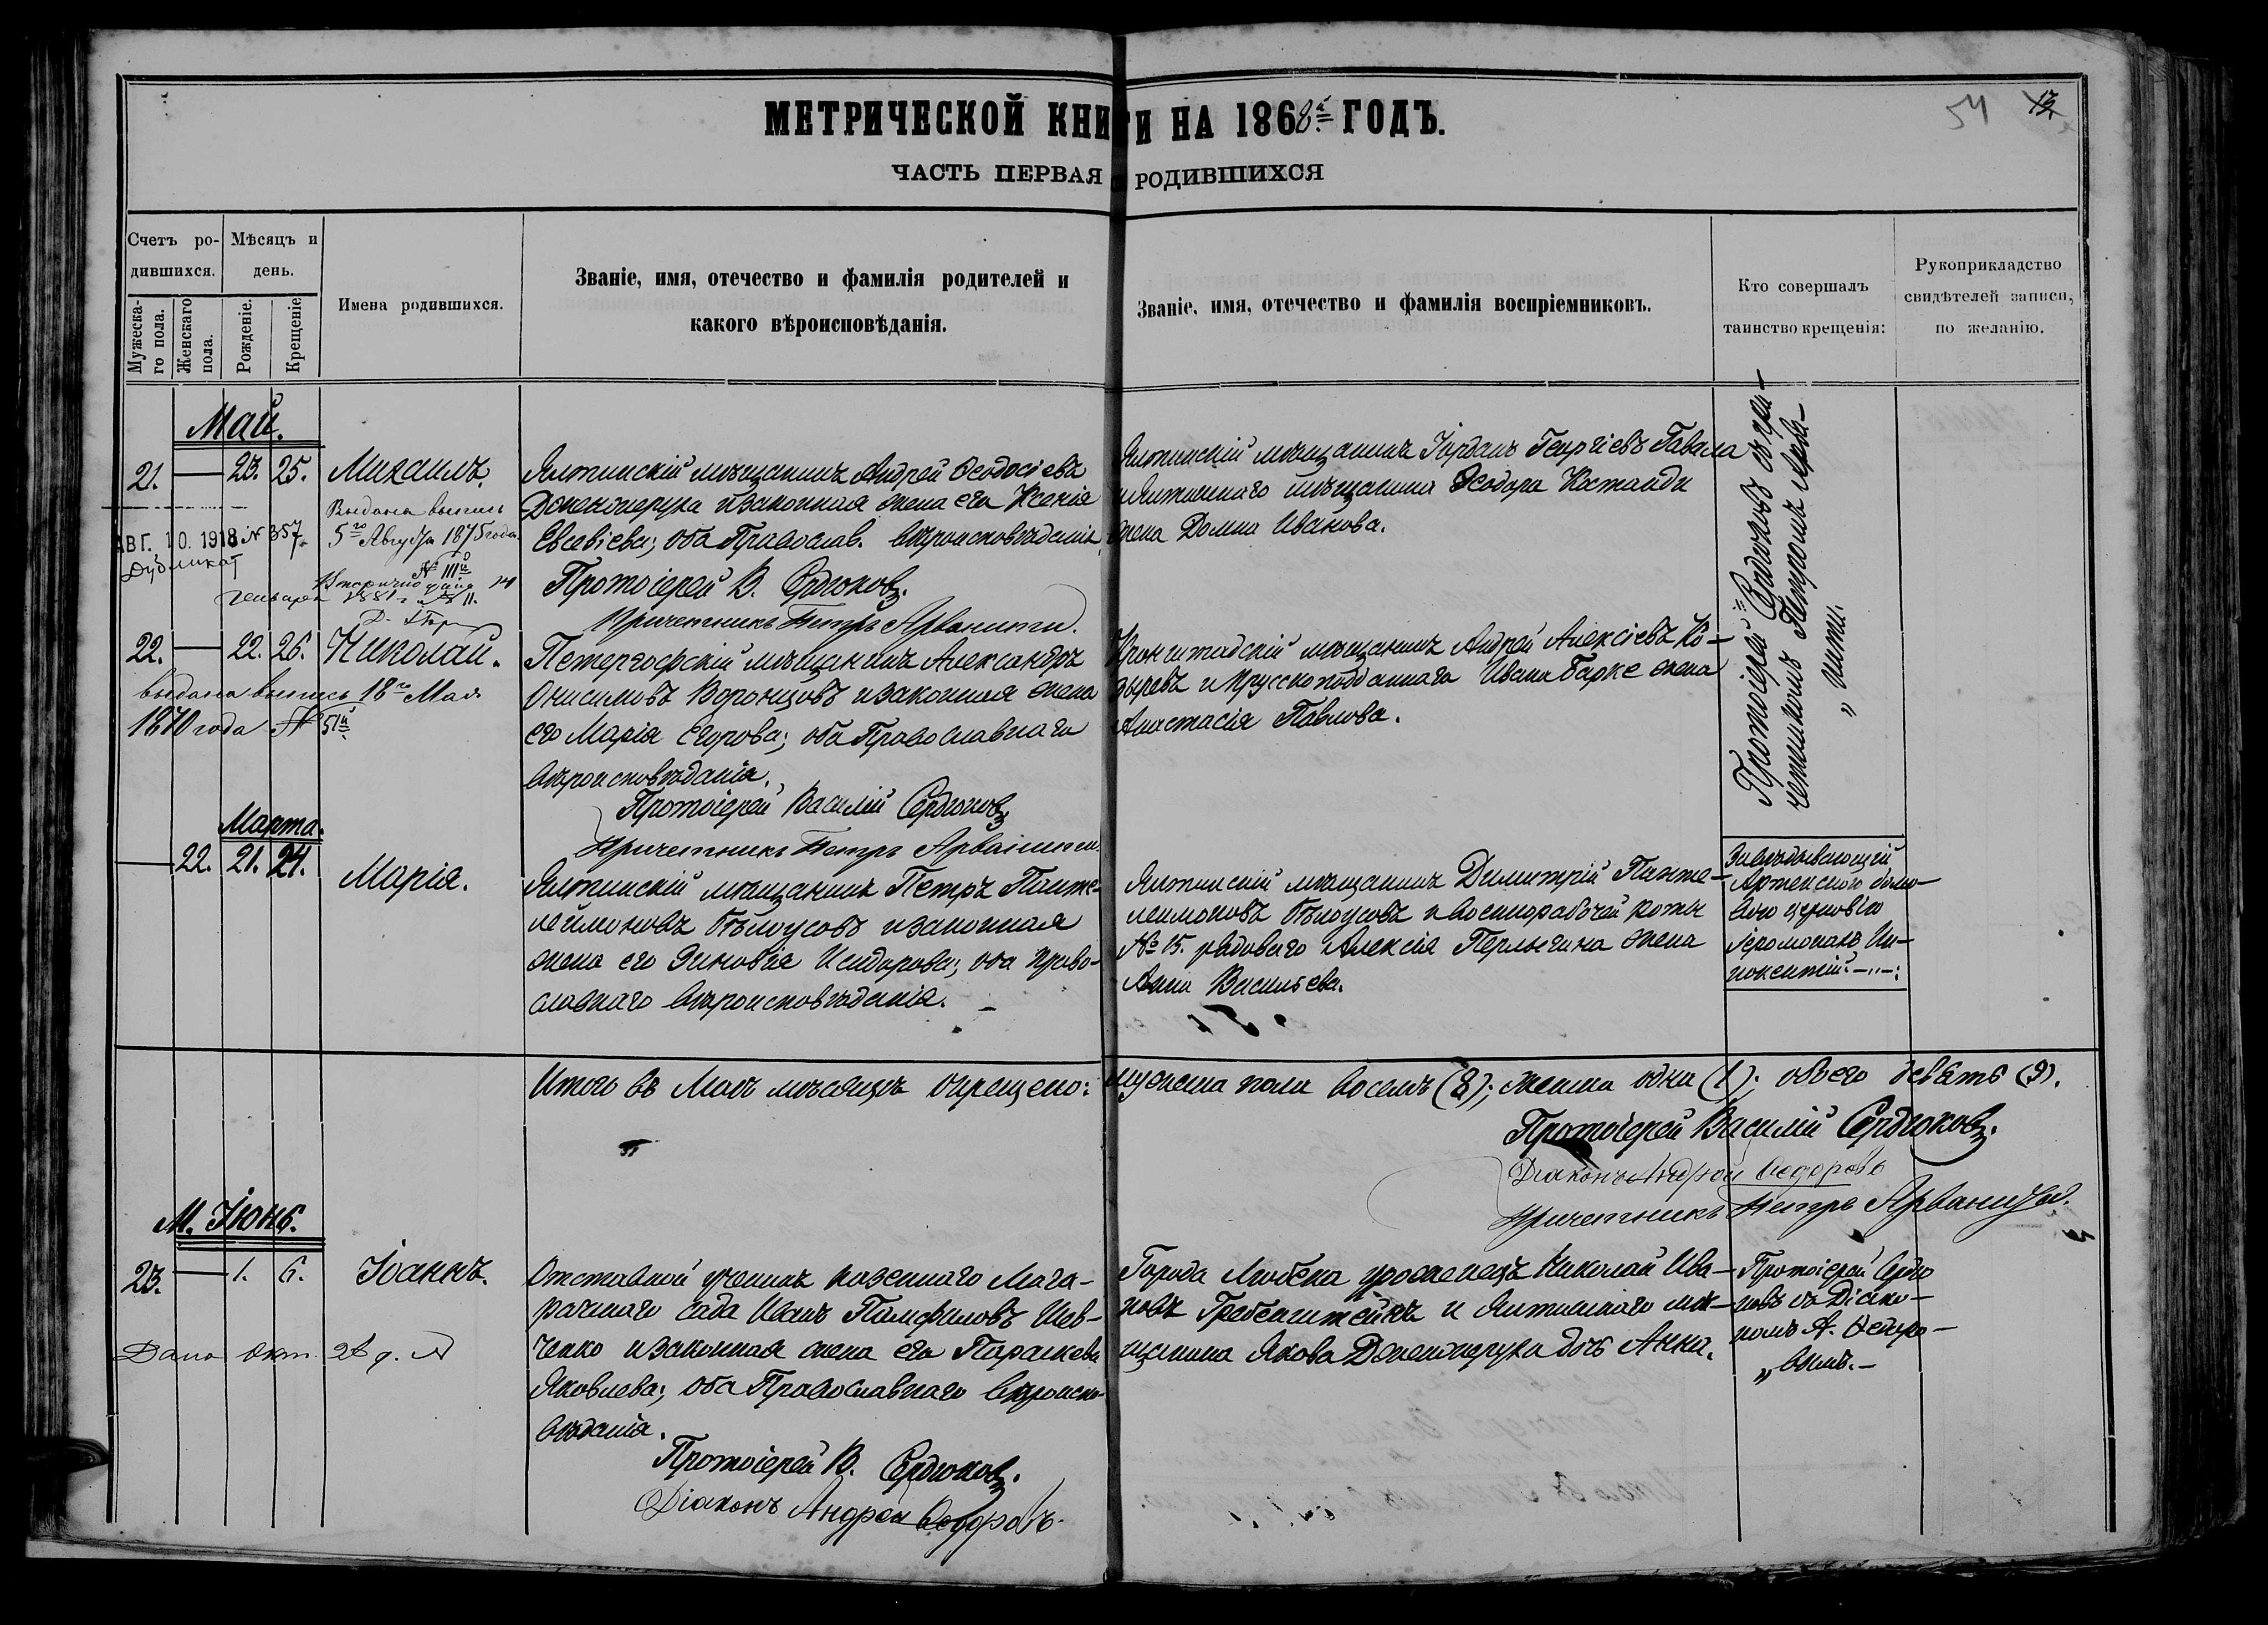 МЕТРИЧЕСКОЙ КНИГИ НА 1868й ГОДЪ.
54 13
ЧАСТЬ ПЕРВАЯ РОДИВШИХСЯ
Счетъ родившихся.
Мужескаго пола.
Женскаго пола.
Мѣсяцъ и день.
Рожденіе.
Крещеніе.
Имена родившихся.
Званіе, имя, отечество и фамилія родителей и
какого вѣроисповѣданія.
Званіе, имя, отечество и фамилія воспріемниковъ.
Кто совершалъ
таинство крещенія:
Рукоприкладство
свидѣтелей записи,
по желанію.
Май.
21. — 23. 25. Михаилъ.
Выдана выпись
5го Августа 1875 года
№ 111й
АВГ. 10. 1918 № 357
Дубликат
Вторично дана 14
Генваря 1881 г. № 11.
Ялтинскій мѣщанинъ Андрей Ѳеодосіевъ
Дженджеруха и законная жена его Ксенія
Евсевіева; оба Православ. вѣроисповѣданія
Протоіерей В. Сердюковъ.
Причетникъ Петръ Арванити.
Ялтинскій мѣщанинъ Іорданъ Георгіевъ Гавала
и Ялтинскаго мѣщанина Ѳеодора Костанди
жена Домна Иванова.
Протоіерей Сердюковъ съ при-
четникомъ Петромъ Арва-
„ нити.
22. — 22. 26. Николай.
Выдана выпись 18го Мая
1870 года № 51й
Петергофскій мѣщанинъ Александръ
Онисимовъ Воронцовъ и законная жена
его Марія Егорова; оба Православнаго
вѣроисповѣданія.
Протоіерей Василій Сердюковъ
Причетникъ Петръ Арванити.
Кронштадскій мѣщанинъ Андрей Алексіевъ Ко-
зыревъ и Прусскоподданнаго Ивана Барке жена
Анастасія Павлова.
Марта.
— 22. 21. 24. Марія.
Ялтинскій мѣщанинъ Петръ Панте-
леймоновъ Бѣлоусовъ и законная
жена его Зиновія Исидорова; оба право-
славнаго вѣроисповѣданія. —
Ялтинскій мѣщанинъ Димитрій Панте-
леимоновъ Бѣлоусовъ и военнорабочей роты
№ 15. рядоваго Алексія Перлыгина жена
Анна Васильева.
Завѣдывающій
Артекскою домо-
вою церковію
Іеромонахъ Ин-
нокентій. —
Итого въ Маѣ мѣсяцѣ окрещено: мужеска пола восемь (8); женска одна (1); обоего девять (9).
Протоіерей Василій Сердюковъ.
Діаконъ Андрей Ѳедоровъ
Причетникъ Петръ Арванити.
М. Іюнь.
23. — 1. 6. Іоаннъ.
Дано окт.
Отставной ученикъ казеннаго Мага-
рачскаго сада Иванъ Памфиловъ Шев-
ченко и законная жена его Параскева
Яковлева; оба Православнаго вѣроиспо-
вѣданія.
Протоіерей В. Сердюковъ.
Діаконъ Андрей Ѳедоровъ.
Города Любека уроженецъ Николай Ива-
новъ Гребенштейнъ и Ялтинскаго мѣ-
щанина Якова Дженджеруха дочь Анна.
Протоіерей Сердю
ковъ съ Діако-
номъ А. Ѳедоро-
„ вымъ. —